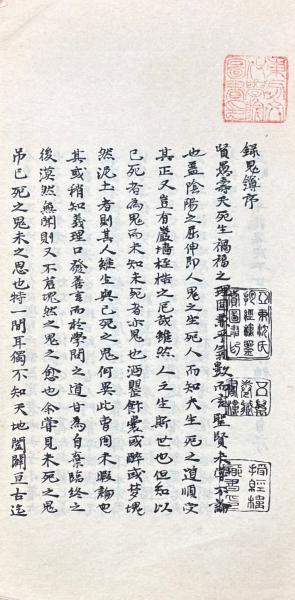 錄鬼簿序
賢愚壽夭死生禍福之理固兼乎氣數而言聖賢未嘗不論
也蓋陰陽之屈伸即人鬼之生死人而知夫生死之道順受
其正又豈有巖墻桎梏之厄哉雖然人之生斯世也但知以
已死者為鬼而未知未死者亦鬼也酒罌飯囊或醉或夢塊
然泥土者則其人雖生與已死之鬼何異此固未暇論也
其或稍知義理口發善言而於學問之道甘為自棄臨終之
後漠然無聞則又不若塊然之鬼之愈也余嘗見未死之鬼
吊已死之鬼未之思也特一間耳獨不知天地闔闢亘古迄
亞東沈氏抱經樓鑒賞圖書印